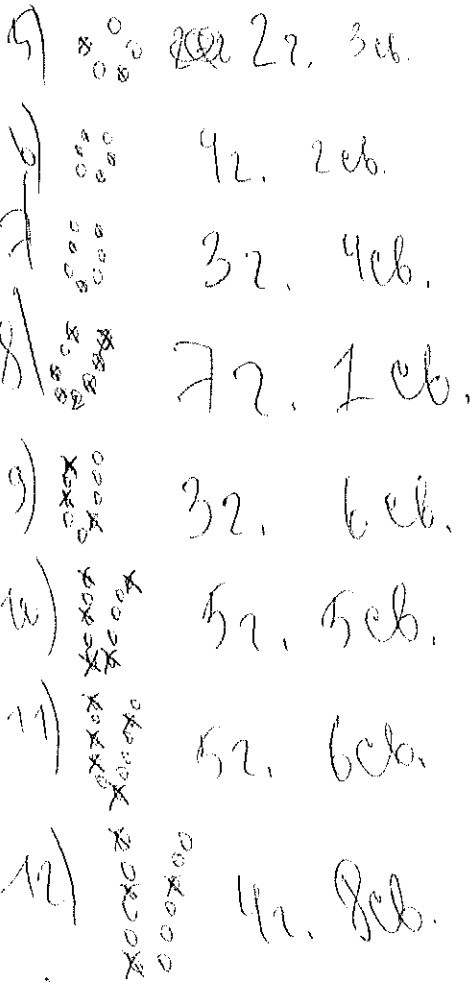 5) 2г. 3св.
6) 4г. 2св.
7) 3г. 4св.
8) 7г. 1св.
9) 3г. 6св.
10) 5г. 5св.
11) 5г. 6св.
12) 4г. 8св.